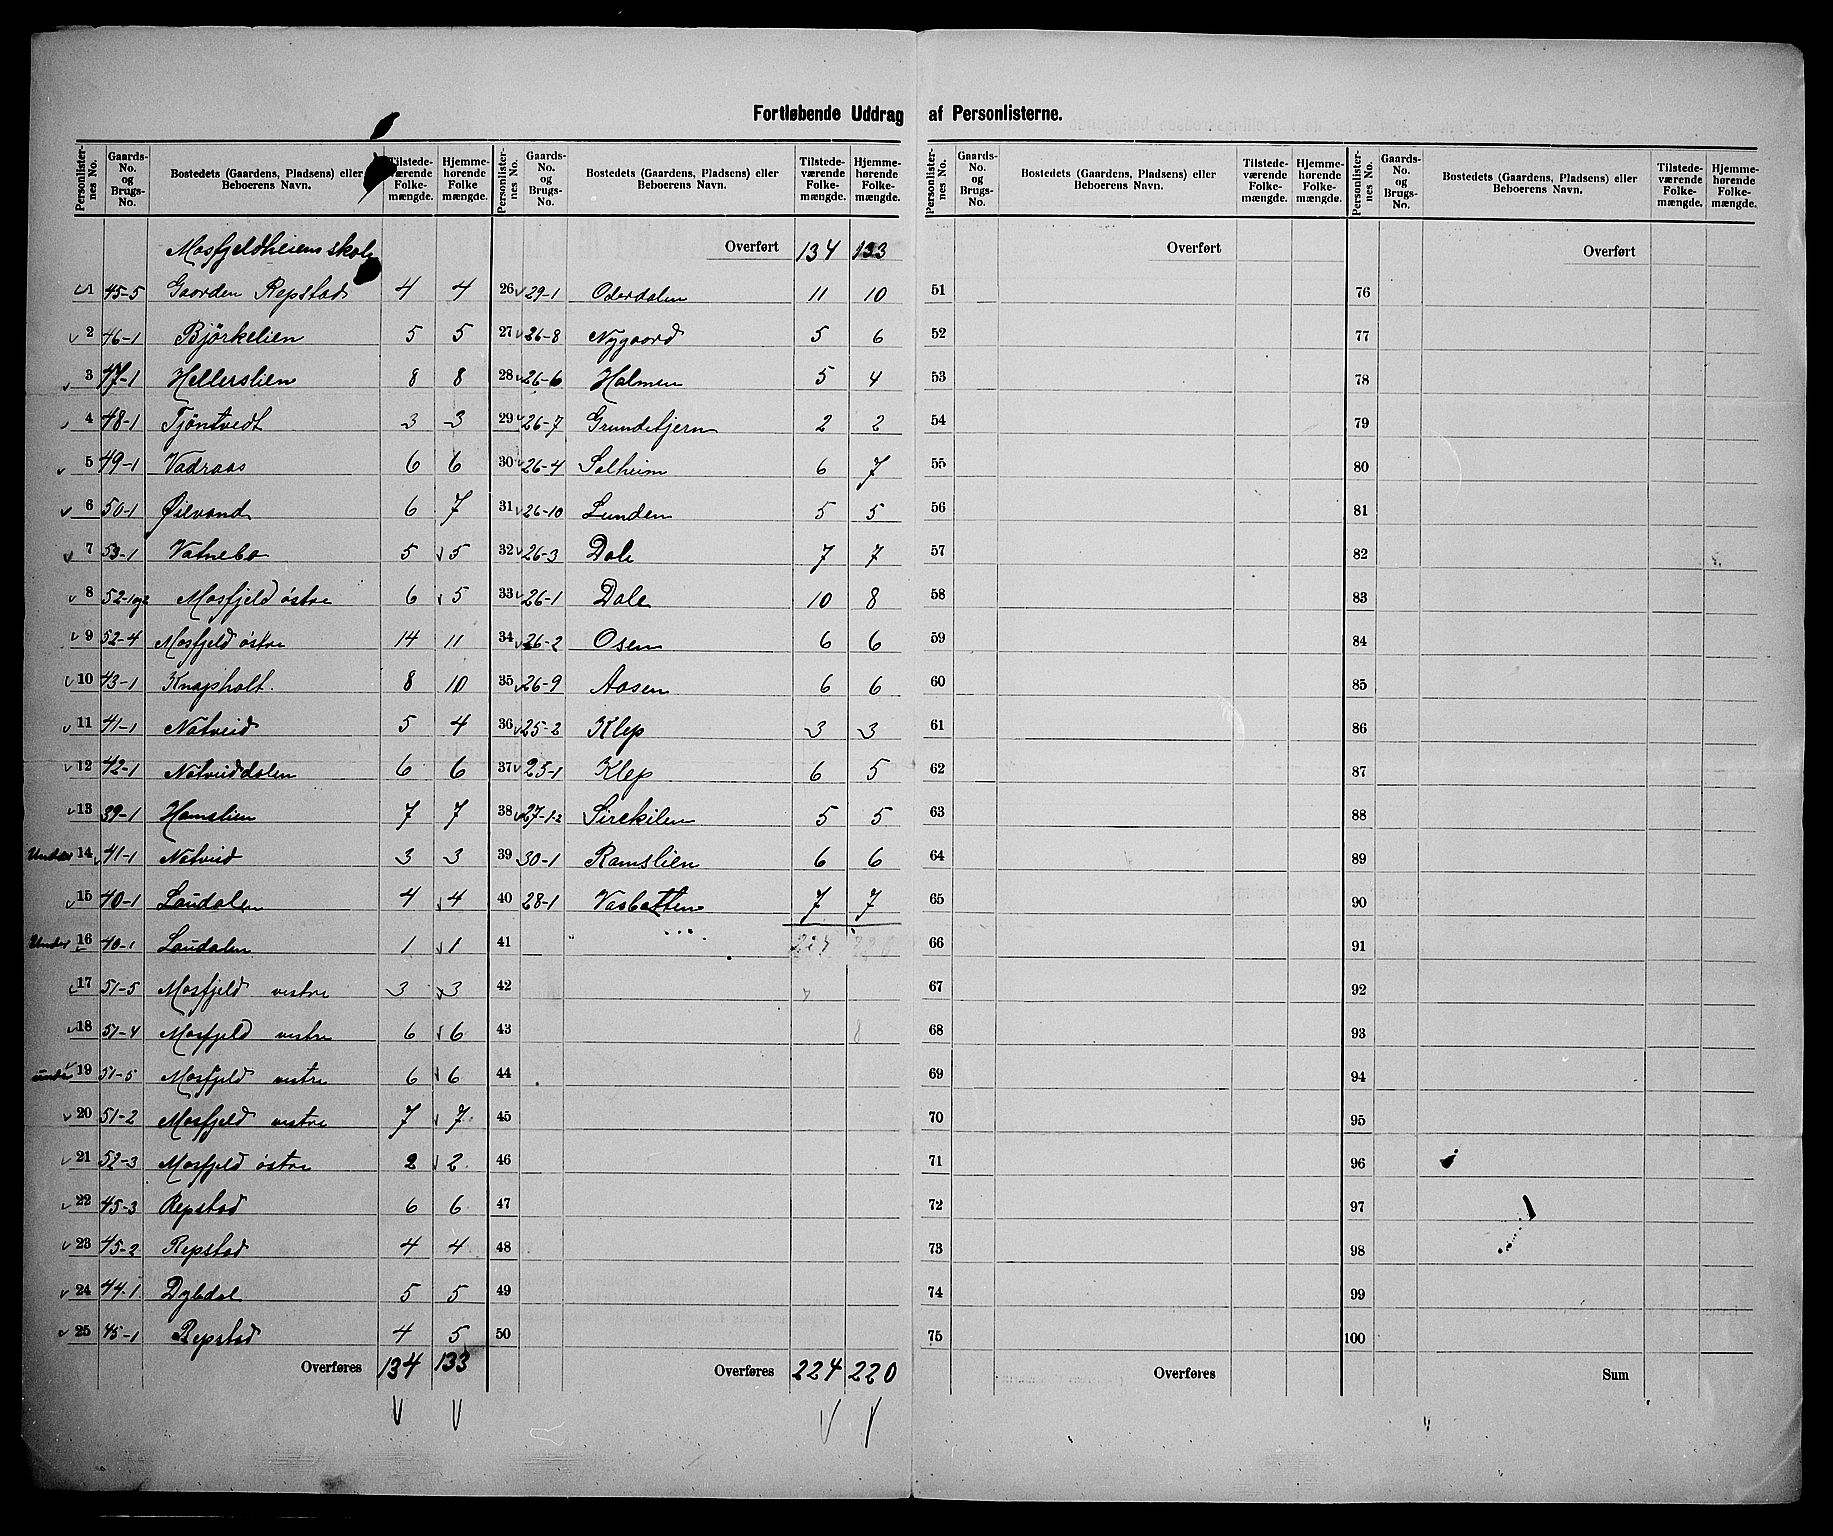 Fortløbende Uddrag af Personlisterne.
Personlister-nes No. Gaards-No. og Brugs-No. Bostedets (Gaardens, Pladsens) eller Beboerens Navn. Tilstede-værende Folke-mængde. Hjemme-hørende Folke mængde. Personlister-nes No. Gaards-No. og Brugs-No. Bostedets (Gaardens, Pladsens) eller Beboerens Navn. Tilstede-værende Folke-mængde. Hjemme-hørende Folke-mængde. Personlister-nes No. Gaards-No. og Brugs-No. Bostedets (Gaardens, Pladsens) eller Beboerens Navn. Tilstede-værende Folke-mængde. Hjemme-hørende Folke-mængde. Personlister-nes No. Gaards-No. og Brugs-No. Bostedets (Gaardens, Pladsens) eller Beboerens Navn. Tilstede-værende Folke-mængde. Hjemme-hørende Folke-mængde.
Mosfjeldheiens skole Overført 134 133 Overført Overført
1 45-5 Gaarden Repstad 4 4 26 29-1 Oderdalen 11 10 51 76
2 46-1 Bjørkelien 5 5 27 26-8 Nygaard 5 6 52 77
3 47-1 Hellerslien 8 8 28 26-6 Holmen 5 4 53 78
4 48-1 Tjöntvedt 3 3 29 26-7 Grundetjern 2 2 54 79
5 49-1 Vadraas 6 6 30 26-4 Solheim 6 7 55 80
6 50-1 Øilvand 6 7 31 26-10 Lunden 5 5 56 81
7 53-1 Vatnebo 5 5 32 26-3 Dale 7 7 57 82
8 52-1og2 Mosfjeld östre 6 5 33 26-1 Dale 10 8 58 83
9 52-4 Mosfjeld östre 14 11 34 26-2 Osen 6 6 59 84
10 43-1 Knapholt. 8 10 35 26-9 Aasen 6 6 60 85
11 41-1 Natveid 5 4 36 25-2 Klep 3 3 61 86
12 42-1 Natveiddalen 6 6 37 25-1 Klep 6 5 62 87
13 39-1 Homslien 7 7 38 27-1-2 Sirekilen 5 5 63 88
Under 14 41-1 Natveid 3 3 39 30-1 Ramslien 6 6 64 89
15 40-1 Laudalen 4 4 40 28-1 Vasbotten 7 7 65 90
Under 16 40-1 Laudalen 1 1 41 224 220 66 91
17 51-5 Mosfjeld vestre 3 3 42 67 92
18 51-4 Mosfjeld vestre 6 6 43 68 93
under 19 51-5 Mosfjeld vestre 6 6 44 69 94
20 51-2 Mosfjeld vestre 7 7 45 70 95
21 52-3 Mosfjeld östre 2 2 46 71 96
22 45-3 Repstad 6 6 47 72 97
23 45-2 Repstad 4 4 48 73 98
24 44-1 Dybdal 5 5 49 74 99
25 45-1 Repstad 4 5 50 75 100
Overføres 134 133 Overføres 224 220 Overføres Sum